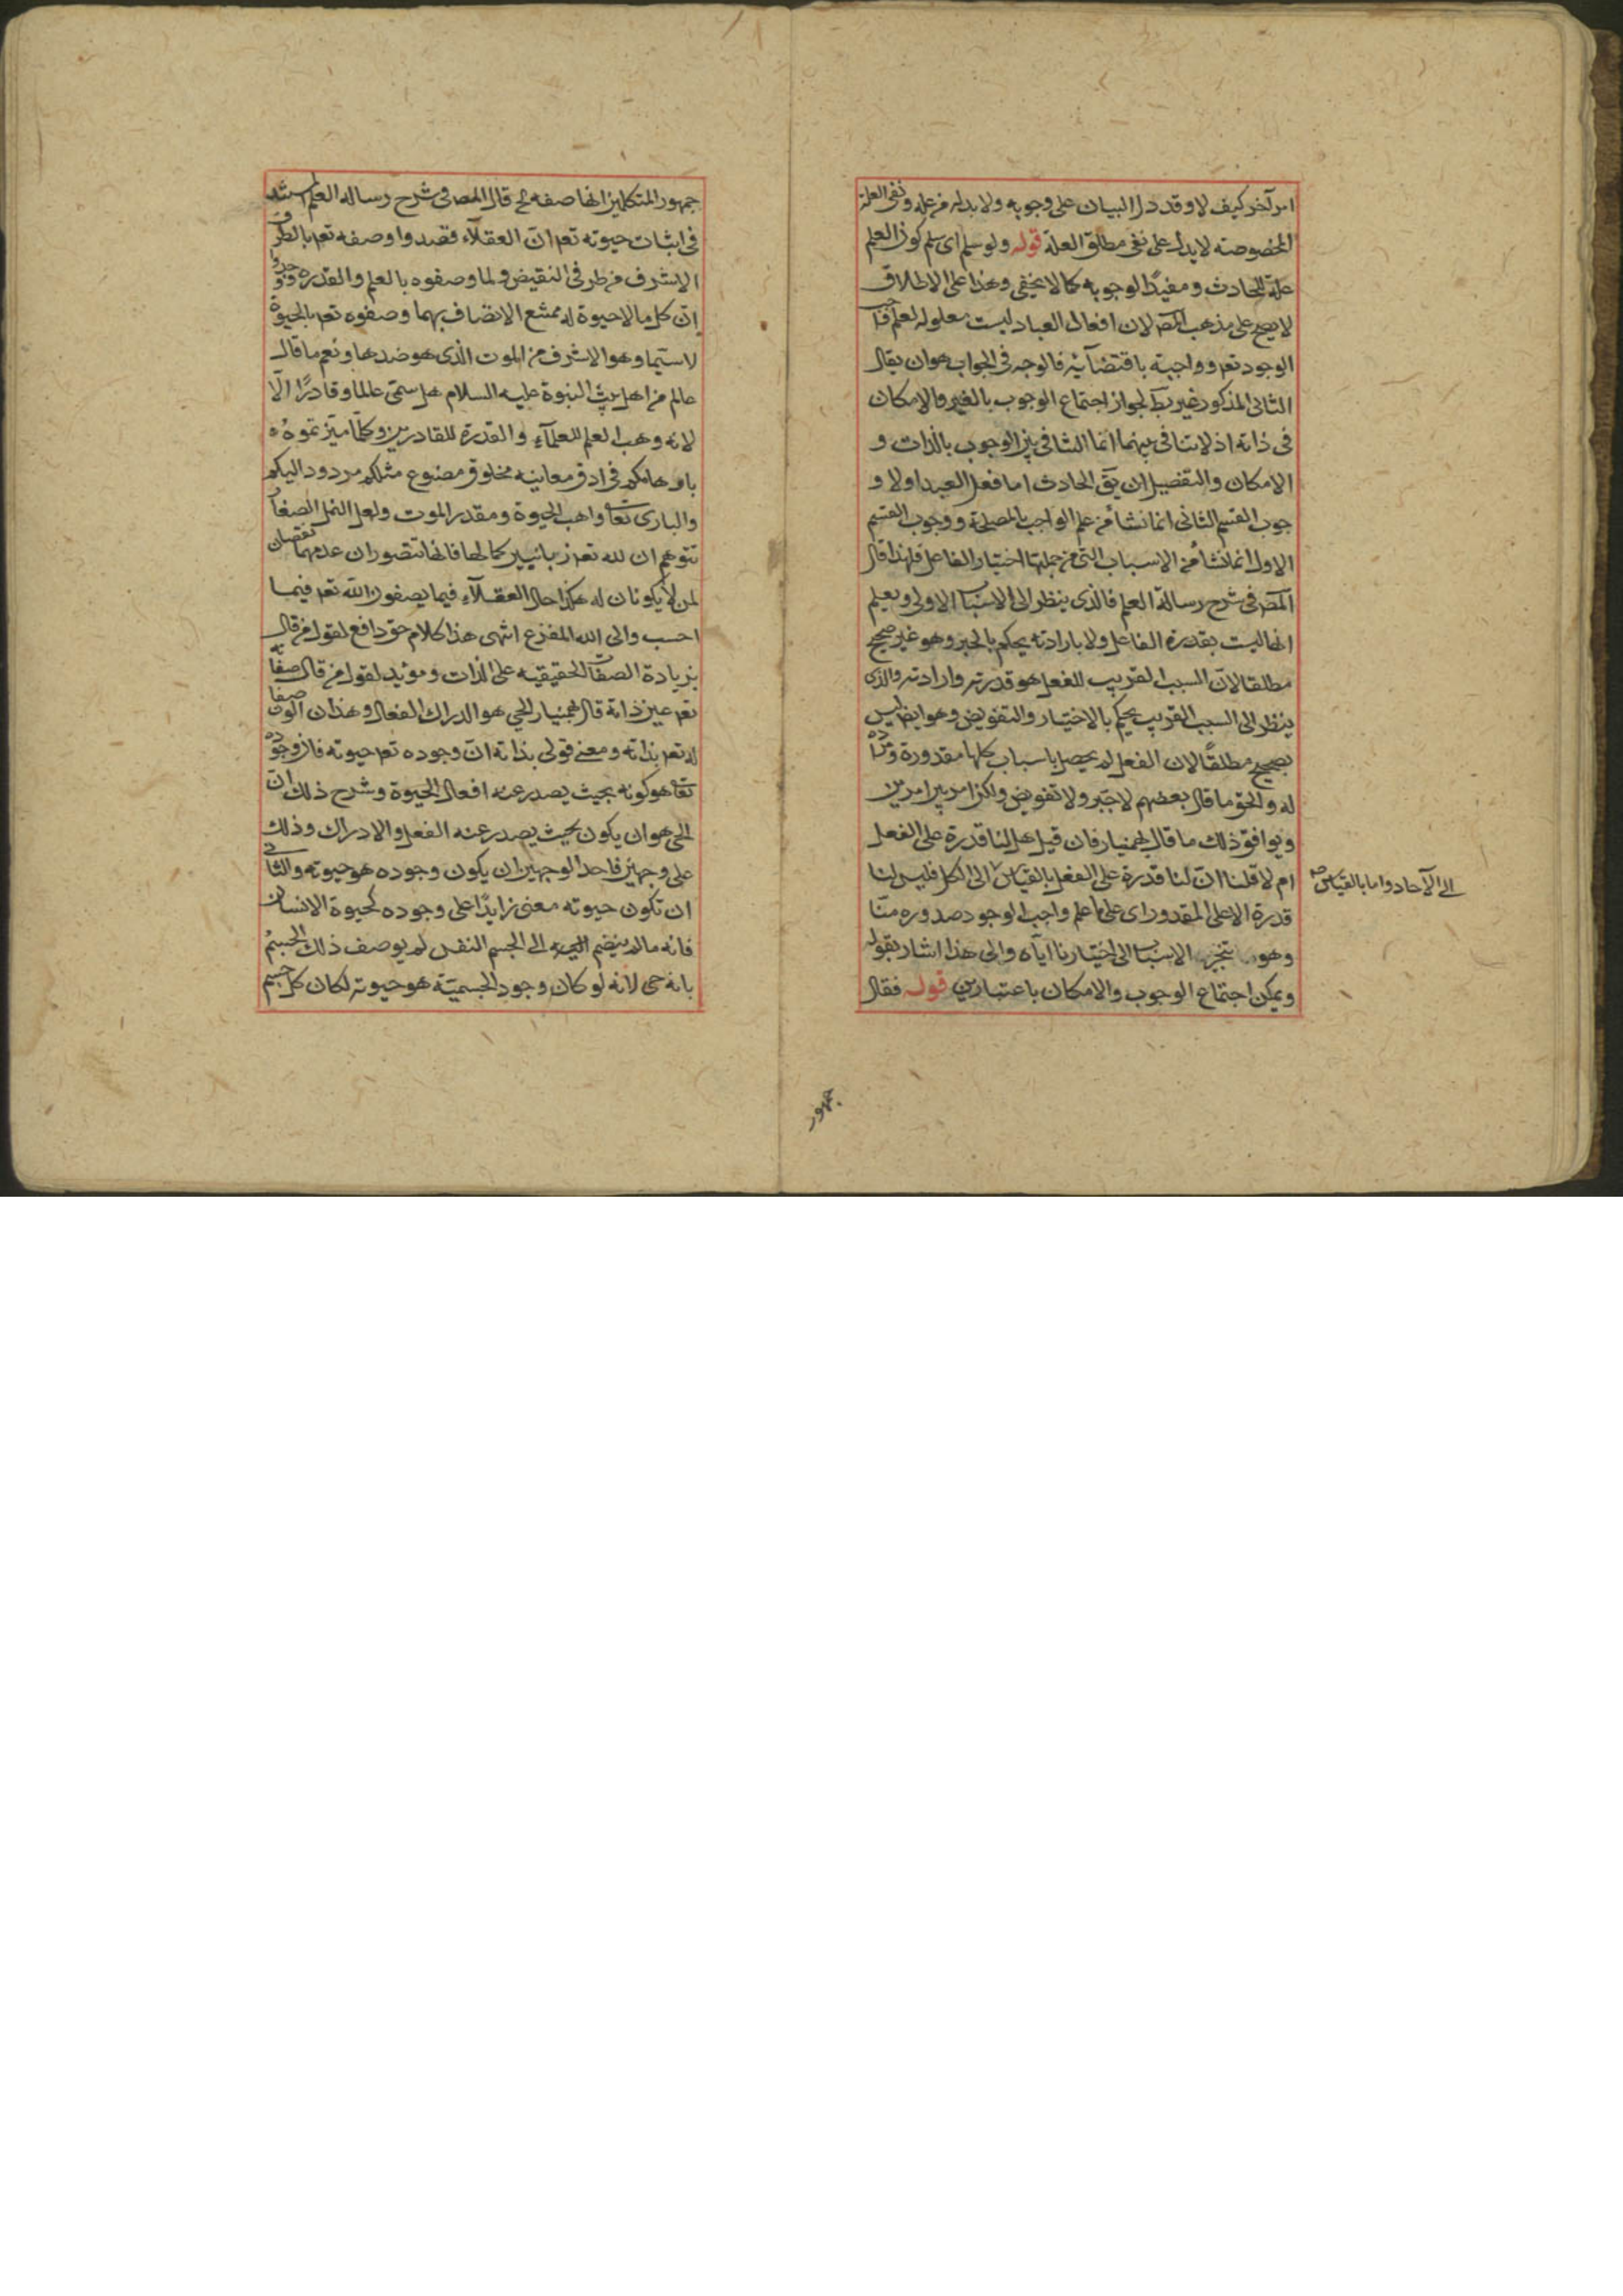 امر آخر كيف لا وقد دل البيان على وجوبه ولا بد له من علة ونفى العلة
المخصوصته لا يدل على نفى مطلق العلة قوله ولو سلم اى سلم كون العلم
علة للحادث ومفيدًا لوجوبه كما لا يخفى وهذا على الاطلاق
لا يصح على مذهب المص لان افعال العباد ليست معلوله لعلم
الوجود تعم وواجبة باقتضائه فالوجه فى الجواب هو ان يقال
الثانى المذكور غير بط لجواز اجتماع الوجوب بالغير والامكان
فى ذاته اذ لا تنافى بينهما انما التنافى بين الوجوب بالذات و
الامكان والتفصيل ان يق الحادث اما فعل العبد اولا و
جوب القسم الثانى انما نشأ من علم الواجب بالمصلحة ووجوب القسم
الاول انما نشأ من الاسباب التى من جملتها اختيار الفاعل فلهذا قال
المص فى شرح رسالة العلم فالذى ينظر الى الاسباب الاولى ويعلم
انها ليست بقدرة الفاعل ولا بارادته يحكم بالجبر وهو غير صحيح
مطلقا لان السبب القريب للفعل هو قدرته وارادته والذى
ينظر الى السبب القريب يحكم بالاختيار والتفويض وهو ايضا ليس
بصحيح مطلقًا لان الفعل لم يحصل باسباب كلها مقدورة ومرادة
له والحق ما قال بعضهم لا جبر ولا تفويض ولكن امر بين امرين
ويوافق ذلك ما قال بهمنيار فان قيل هل لنا قدرة على الفعل
ام لا قلنا ان لنا قدرة على الفعل بالقياس الى الكل فليس لنا
الى الآحاد واما بالقياس صح
قدرة الا على المقدور اى على ما علم واجب الوجود صدوره منا
وهو الاسباب الى اختيارنا اياه والى هذا اشار بقوله
ويمكن اجتماع الوجوب والامكان باعتبارين قوله فقال
جمهور
جمهور المتكلمين انها صفه الخ قال المص فى شرح رساله العلم
فى اثبات حيوته تعم ان العقلاء قصدوا وصفه تعم بالطرف
الاشرف من طرفى النقيض ولما وصفوه بالعلم والقدره ووجدوا
ان كل ما لا حيوة له ممتنع الاتصاف بهما وصفوه تعم بالحيوة
لا سيما وهو الاشرف من الموت الذى هو ضدها ونعم ما قال
عالم من اهل بيت النبوة عليه السلام هل سمى عالما وقادرًا الا
لانه وهب العلم للعلماء والقدرة للقادرين وكلما ميزتموه
باوهامكم فى ادق معانيه مخلوق مصنوع مثلكم مردود اليكم
والبارى تعا واهب الحيوة ومقدر الموت ولعل النمل الصغار
تتوهم ان لله تعم زبانيين كما لها فانها تتصور ان عدمهما نقصان
لمن لا يكونان له هكذا حال العقلاء فيما يصفون الله تعم فيما
احسب والى الله المفزع انتهى هذا كلام حق دافع لقول من قال
بزيادة الصفات الحقيقيه على الذات ومؤيد لقول من قال صفاته
تعم عين ذاته قال بهمنيار الحى هو الدراك الفعال وهذان الوصفان
له تعم بذاته ومعنى قولى بذاته ان وجوده تعم حيوته فان وجوده
تعا هو كونه بحيث يصدر عنه افعال الحيوة وشرح ذلك ان
الحى هو ان يكون بحيث يصدر عنه الفعل والادراك وذلك
على وجهين فاحد الوجهين ان يكون وجوده هو حيوته والثانى
ان تكون حيوته معنى زايدًا على وجوده كحيوة الانسان
فانه ما لم ينضم اليه الى الجسم النفس لم يوصف ذلك الجسم
بانه حى لانه لو كان وجود الجسمية هو حيوته لكان كل جسم